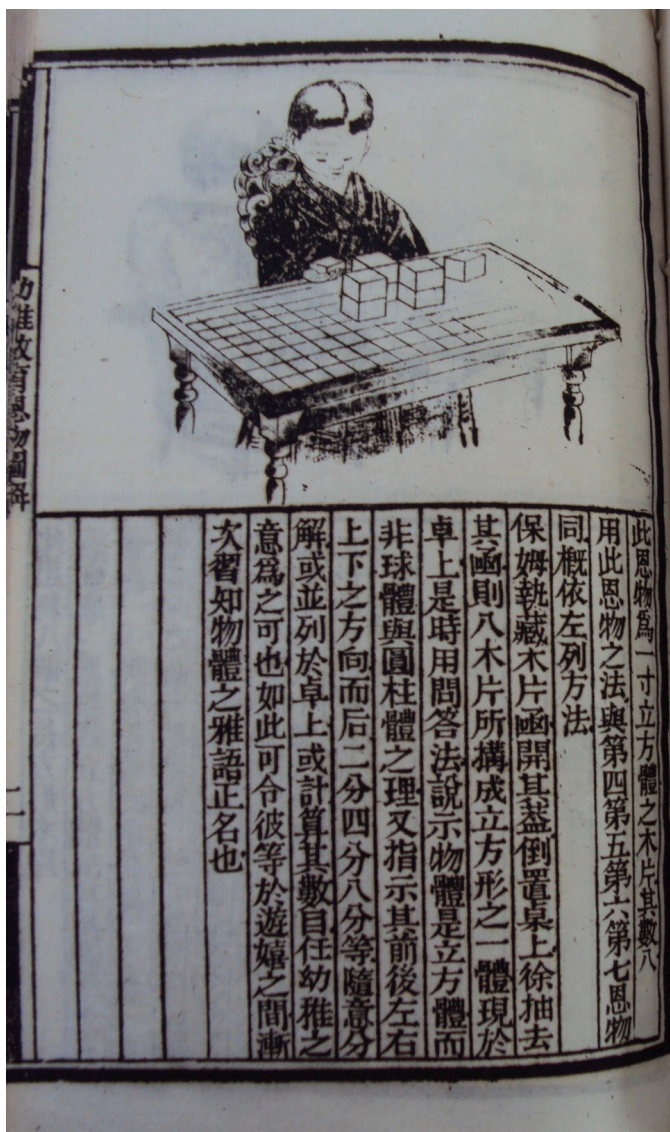 此恩物爲一寸立方體之木片其數八
用此恩物之法與第四第五第六第七恩物
同概依左列方法
保姆執藏木片凾開其蓋倒置桌上徐抽去
其凾則八木片所構成立方形之一體現於
卓上是時用問答法說示物體是立方體而
非球體與圓柱體之理又指示其前後左右
上下之方向而后二分四分八分等隨意分
解或並列於卓上或計算其數自任幼稚之
意爲之可也如此可令彼等於遊嬉之間漸
次習知物體之雅語正名也
幼稚教育恩物圖解